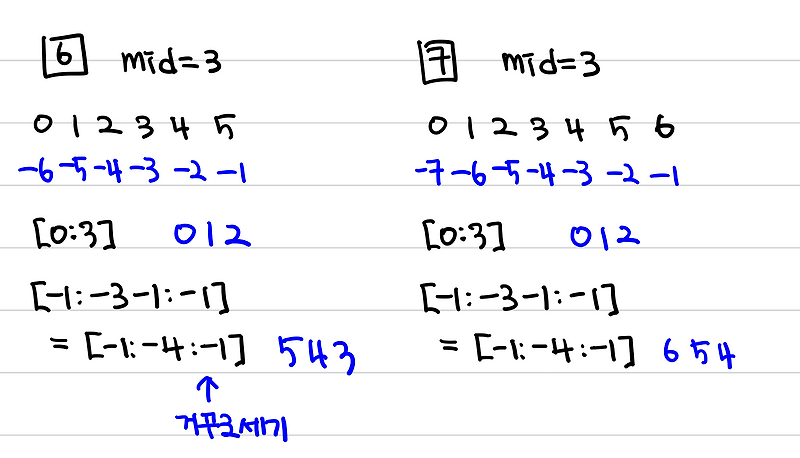 6 mid=3
0 1 2 3 4 5
-6 -5 -4 -3 -2 -1
[0:3] 0 1 2
[-1:-3-1:-1]
= [-1:-4:-1] 5 4 3
↑
거꾸로세기
7 mid=3
0 1 2 3 4 5 6
-7 -6 -5 -4 -3 -2 -1
[0:3] 0 1 2
[-1:-3-1:-1]
= [-1:-4:-1] 6 5 4